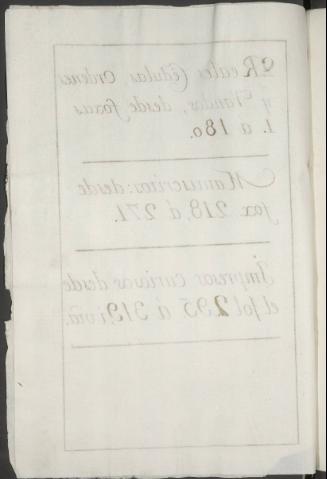 Reales Cédulas Ordenes
y Vandos, desde foxas
1. a 180.
Manuscritos: desde
fox 218, á 271.
Impresos curiosos desde
el fol 295 á 319,